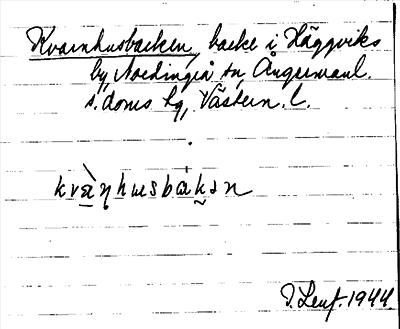 Kvarnhusbacken, backe i Häggviks
by, Nordingrå sn, Ångermanl.
s. doms hg, Västern. l.
kvὰɳhusbákən
1944.